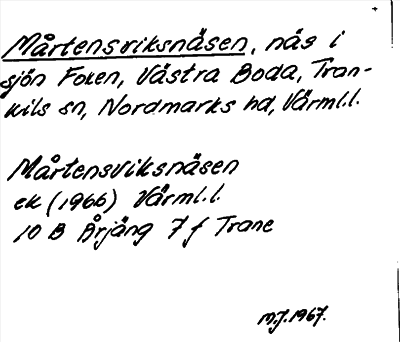 Mårtensviksnäsen, näs i
sjön Foxen, Västra Boda, Tran-
kils sn, Nordmarks hd, Värml.l.
Mårtensviksnäsen
ek (1966) Värml.l.
10 B Årjäng 7 f Trane
M.J. 1967.